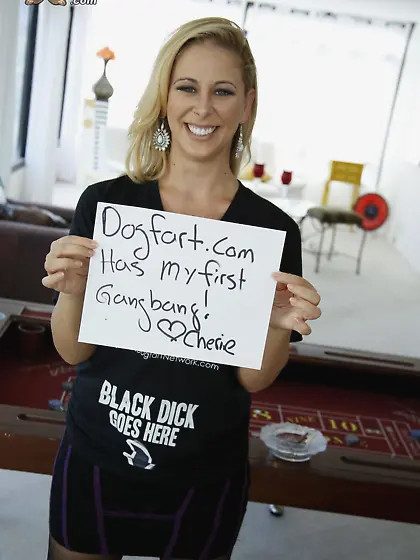 .com
Dogfart.com
Has my first
Gangbang!
♡Cherie
DogfartNetwork.com
BLACK DICK
GOES HERE
8 NINE 10